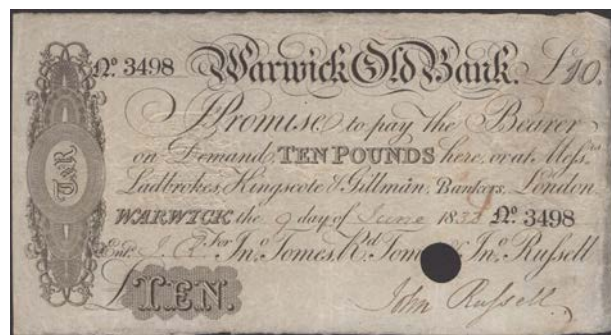 Nº 3498 Warwick Old Bank. £10.
I Promise to pay the Bearer
on Demand TEN POUNDS here, or at Messrs
Ladbrokes, Kingscote & Gillman, Bankers, London
WARWICK the 9 day of June 183 Nº 3498
Entd J. R. For Jno. Tomes, Rd. Tomes & Jno. Russell
£ TEN. John Russell
T&R